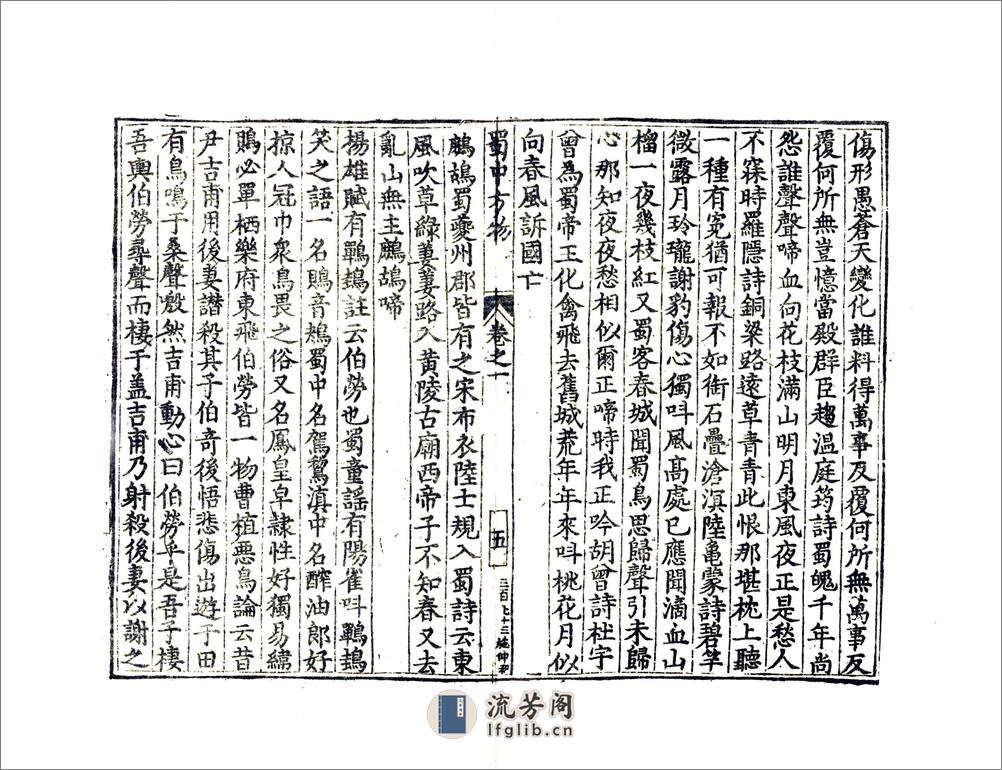 傷形愚蒼天變化誰料得萬事反覆何所無萬事反
覆何所無豈憶當殿群臣趨溫庭筠詩蜀魄千年尚
怨誰聲聲啼血向花枝滿山明月東風夜正是愁人
不寐時羅隱詩銅梁路遠草青青此恨那堪枕上聽
一種有冤猶可報不如銜石疊滄溟陸龜蒙詩碧竿
微露月玲瓏謝豹傷心獨呌風高處已應聞滴血山
榴一夜幾枝紅又蜀客春城聞蜀鳥思歸聲引未歸
心那知夜夜愁相似爾正啼時我正吟胡曾詩杜宇
曾為蜀帝王化禽飛去舊城荒年年來呌桃花月似
向春風訴國亡
蜀中方物
卷之一
五
鷓鴣蜀夔州郡皆有之宋布衣陸士規入蜀詩云東
風吹草綠萋萋路入黄陵古廟西帝子不知春又去
亂山無主鷓鴣啼
揚雄賦有鷤䳏註云伯勞也蜀童謡有陽雀呌鷤䳏
笑之語一名鵙音鴂蜀中名駕鵹滇中名醡油郎好
掠人冠巾衆鳥畏之俗又名鳳皇皁隷性好獨易緯
鵙必單栖樂府東飛伯勞皆一物曹植惡鳥論云昔
尹吉甫用後妻譖殺其子伯奇後悟悲傷出遊于田
有鳥鳴于桑聲噭然吉甫動心曰伯勞乎是吾子棲
吾輿伯勞尋聲而棲于盖吉甫乃射殺後妻以謝之
流芳阁
lfglib.cn